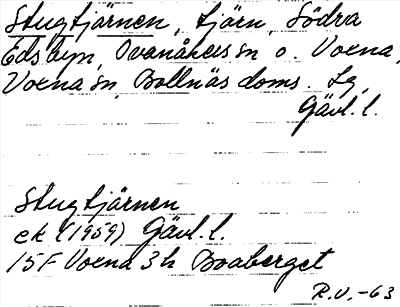 Stugtjärnen, tjärn, Södra
Edsbyn, Ovanåkers sn o. Voxna,
Voxna sn, Bollnäs doms. Lg,
Gävl. l.
Stugtjärnen
ek (1959) Gävl. l.
15F Voxna 3h Broaberget
R.V. -63